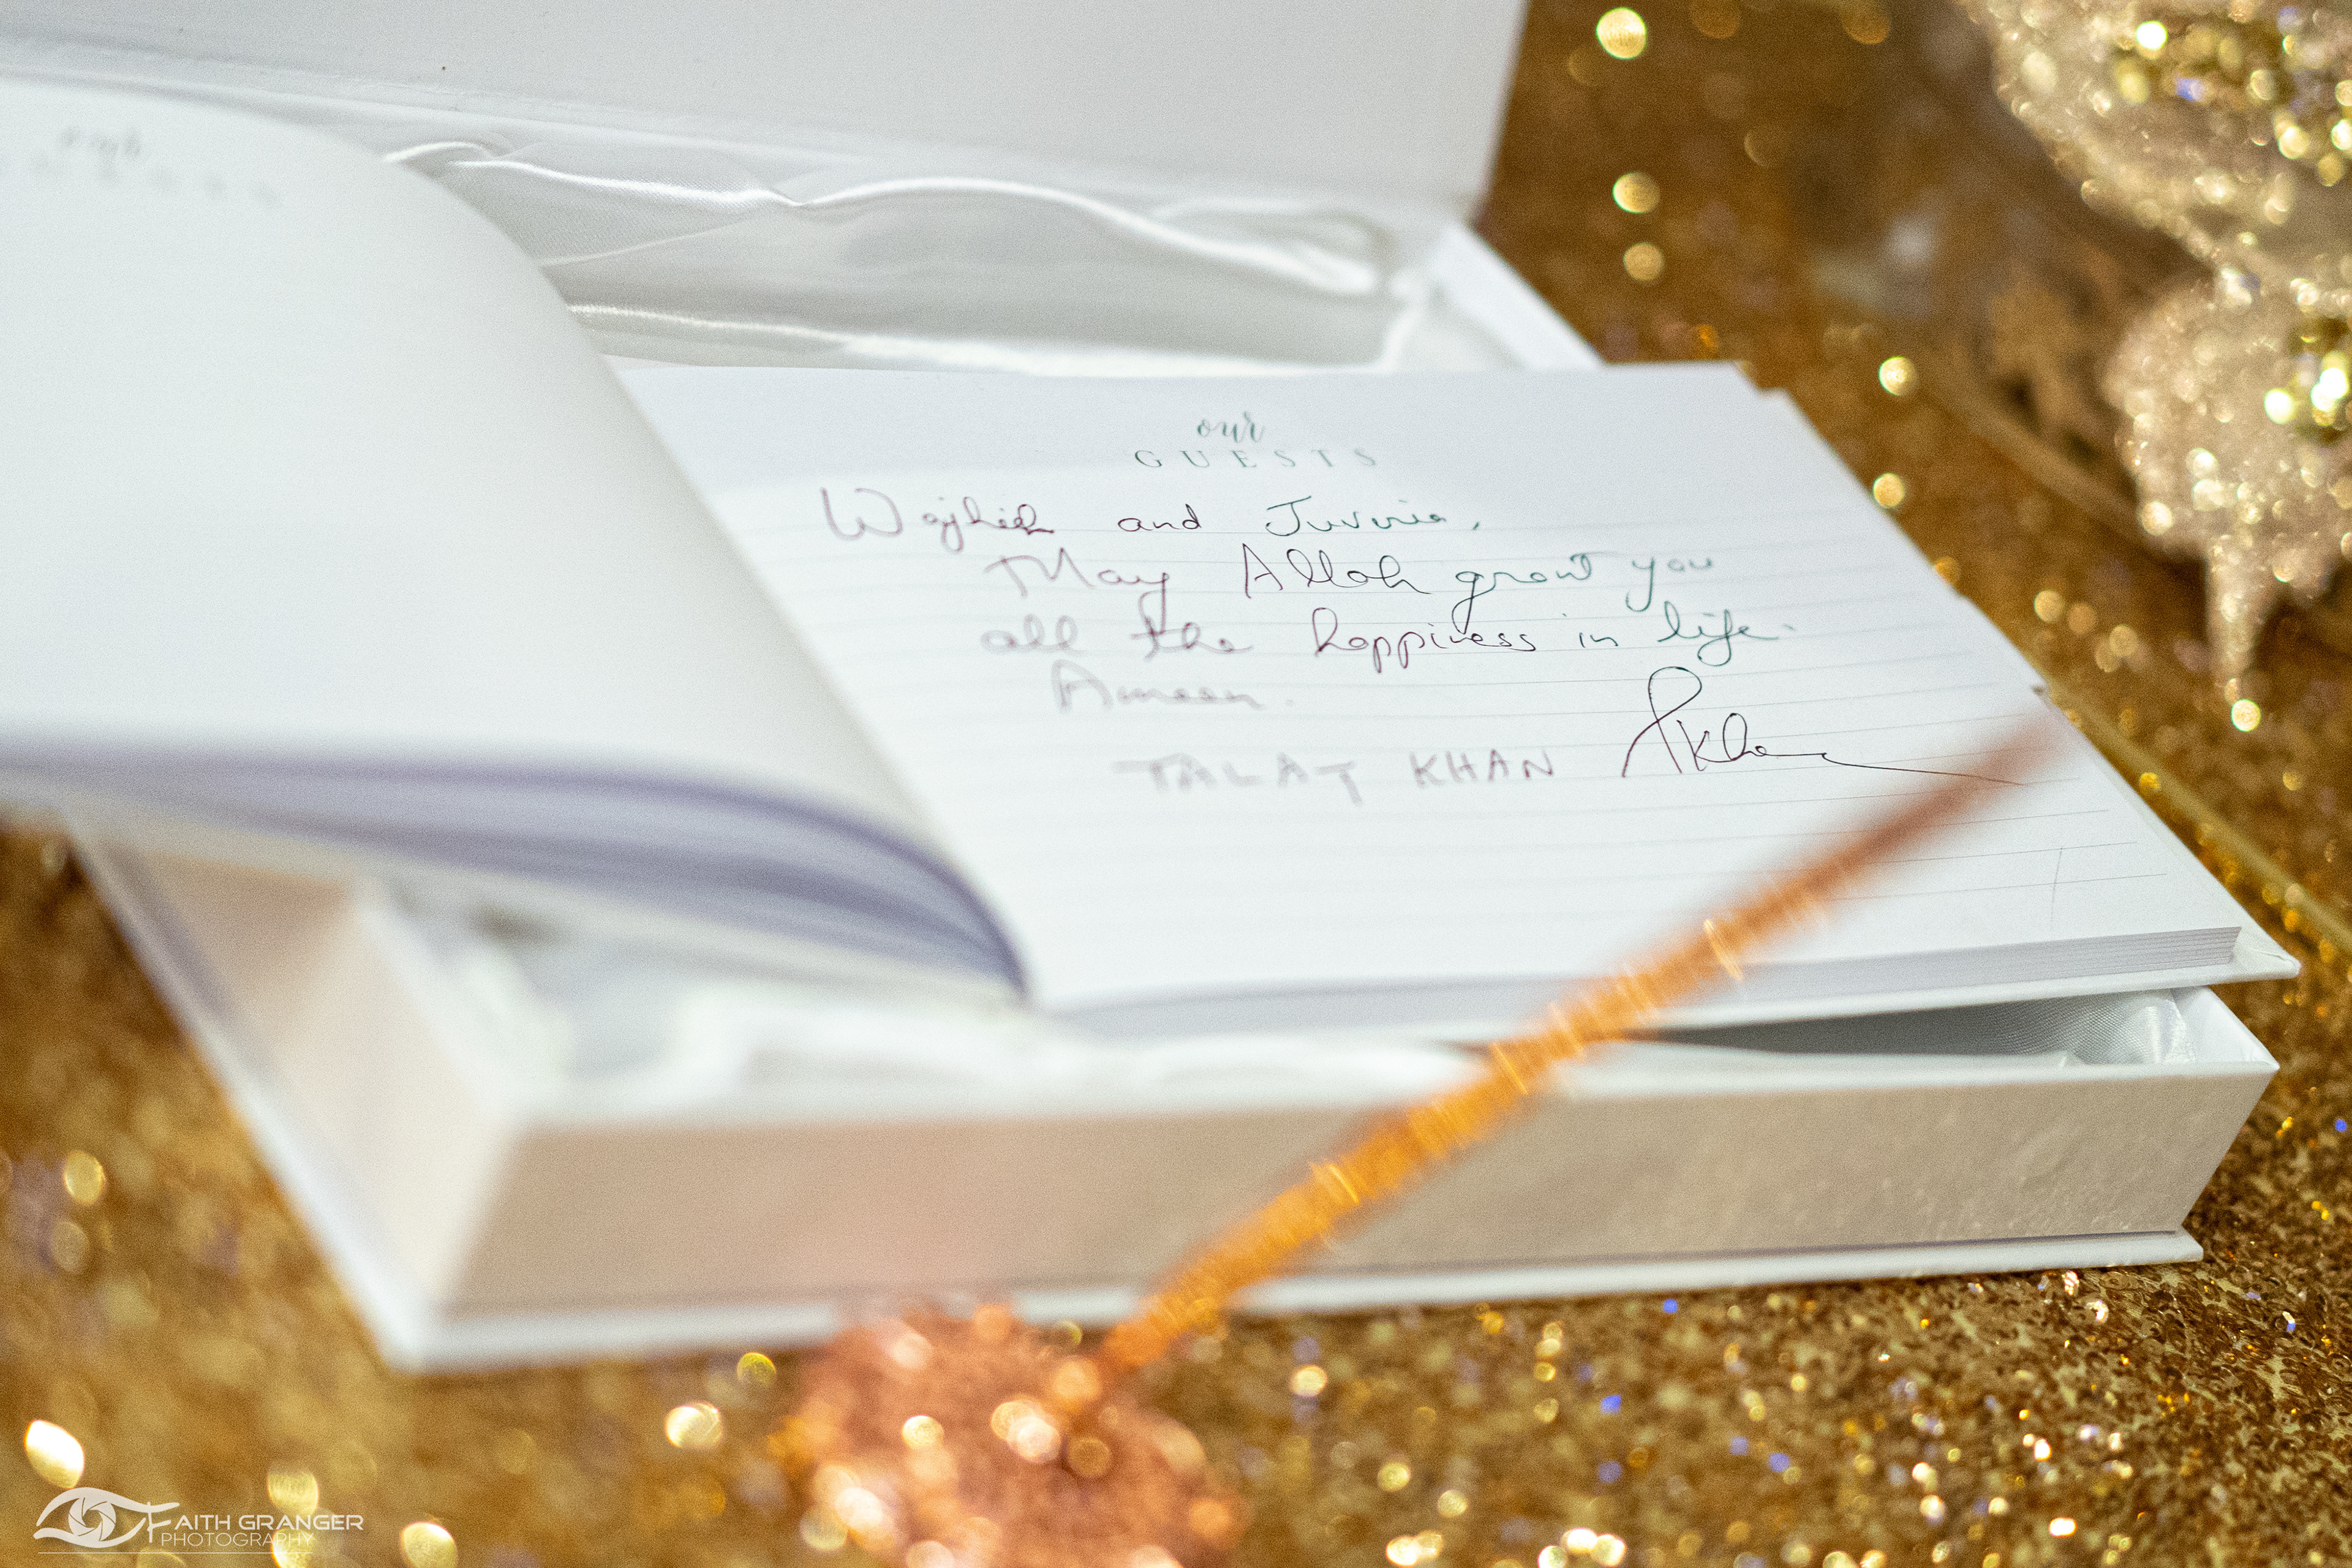 our
GUESTS
Wajhieh and Juvuria,
May Allah grant you
all the happiness in life.
Ameen.
TALAT KHAN TKhan
FAITH GRANGER
PHOTOGRAPHY